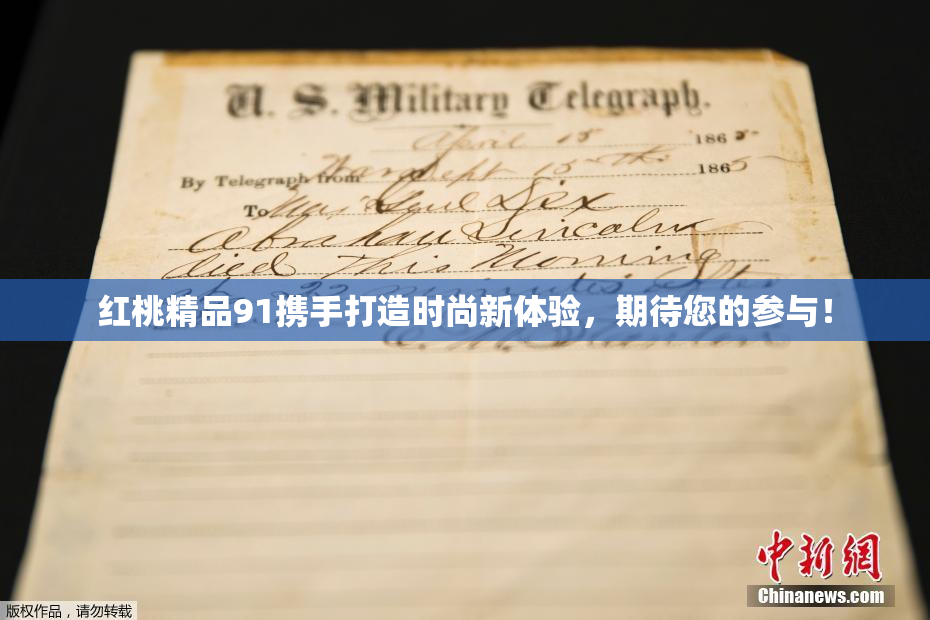 U. S. Military Telegraph.
April 15 1865
By Telegraph from War Dept 15th 1865
To Maj Genl Dix
Abraham Lincoln
died This Morning
at 22 minutes after
红桃精品91携手打造时尚新体验，期待您的参与！
E. M. Stanton
中新网
Chinanews.com
版权作品，请勿转载